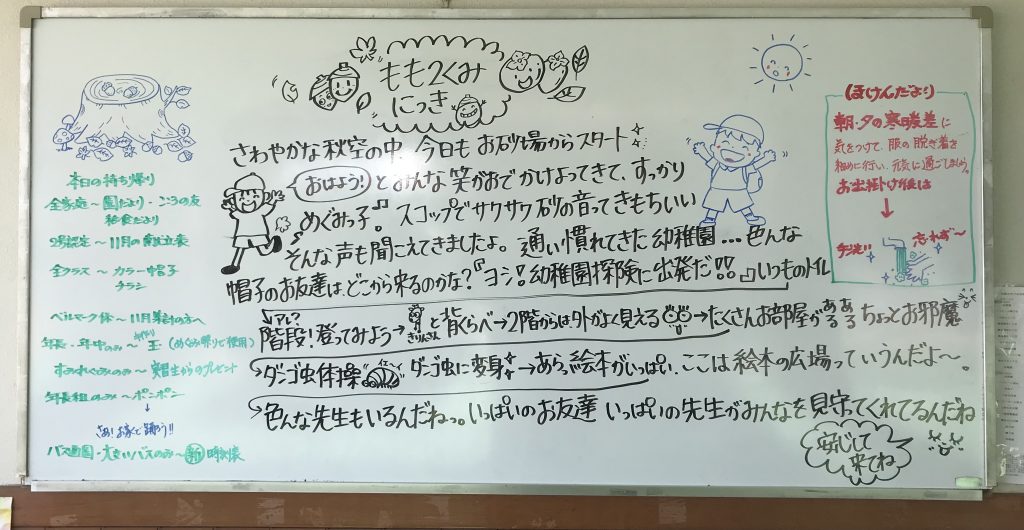 ももつくみ
にっき
さわやかな秋空の中、今日もお砂場からスタート
おはよう! とみんな笑がおでかけよってきて、すっかり
めぐみっ子♪ スコップでサクサク砂の音ってきもちいい
そんな声も聞こえてきましたよ。通い慣れてきた幼稚園…色んな
帽子のお友達は、どこから来るのかな?『ヨシ!幼稚園探険に出発だ!!』いつものトイレ
アレ?
階段!登ってみよう→きりんさんと背くらべ→2階からは外がよく見える→たくさんお部屋があるあるちょっとお邪魔
ダンゴ虫体操 ダンゴ虫に変身→あら、絵本がいっぱい、ここは絵本の広場っていうんだよ〜
色んな先生もいるんだねっ。いっぱいのお友達 いっぱいの先生がみんなを見守ってくれてるんだね
安じして
来てね
本日の持ち帰り
全家庭〜園だより・こころの友
給食だより
2号認定〜11月の献立表
全クラス〜カラー帽子
チラシ
ベルマーク係〜11月集計の方へ
年長・年中のみ〜 玉(めぐみ祭りで使用)
すみれぐみのみ〜実習生からのプレゼント
年長組のみ〜ポンポン
さぁ!お家で踊ろう!!
バス通園・大きいバスのみ〜新時刻表
(ほけんだより)
朝・夕の寒暖差に
気をつけて、服の脱ぎ着を
細めに行い、元気に過ごしましょう。
お出掛け後は
手洗い 忘れず〜